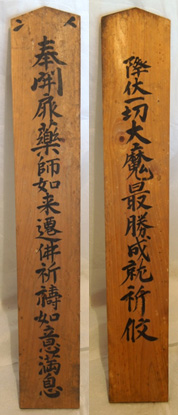 奉開扉藥師如来遷佛祈禱如意満息
降伏一切大魔最勝成就祈